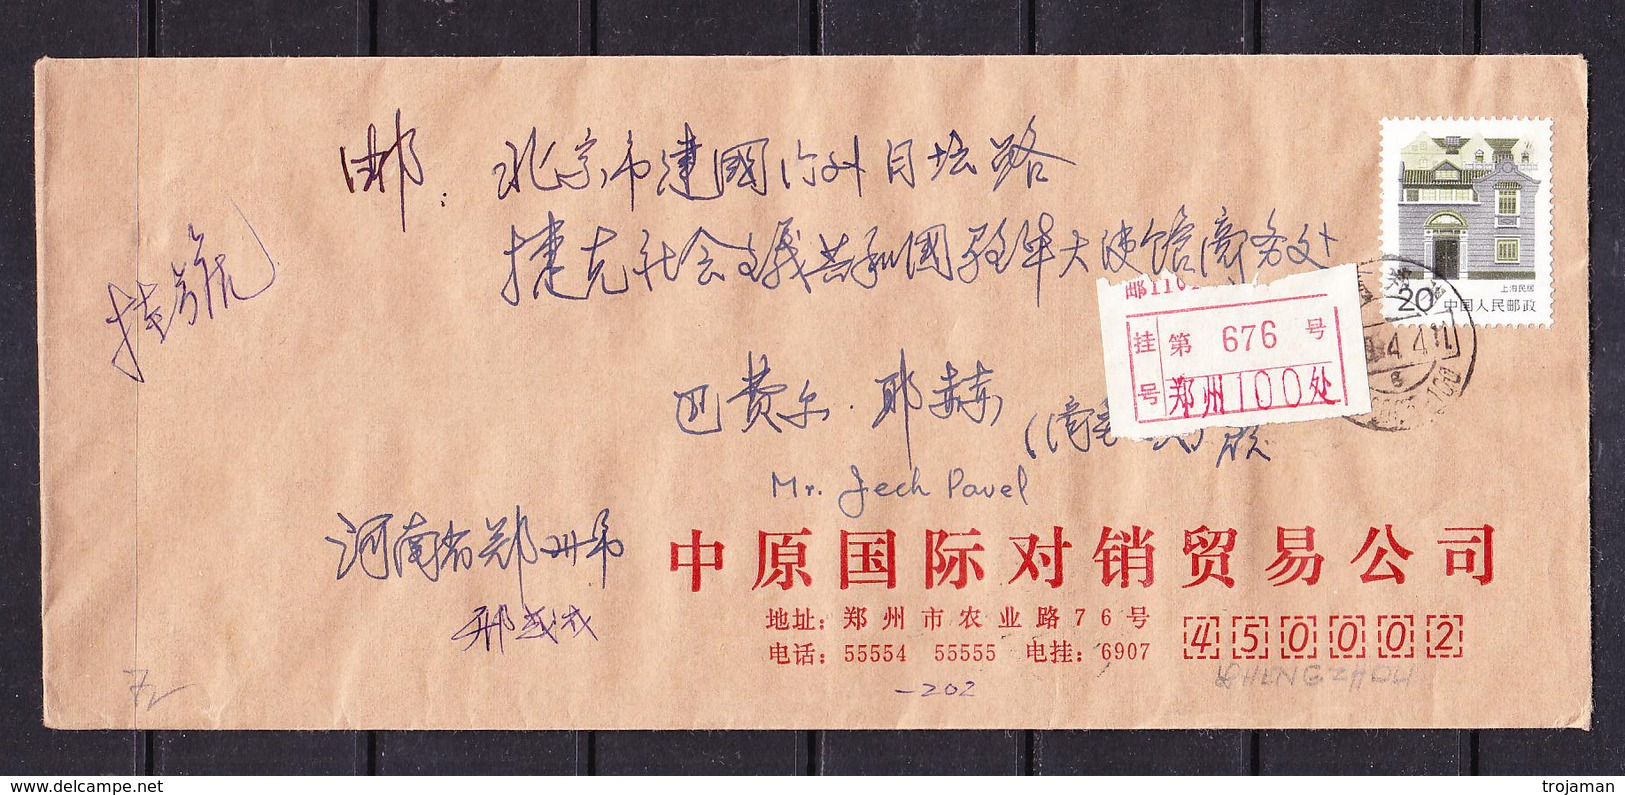 邮：北京市建國门外日坛路
挂号
捷克社会主义共和國驻华大使馆商务处
上海民居
20 中国人民邮政
挂 第 676 号
号 郑州100处
巴费尔·耶赫
Mr. Jech Pavel
河南省郑州市
中原国际对销贸易公司
地址：郑州市农业路76号
450002
电话：55554 55555 电挂：6907
-202
ZHENGZHOU
delcampe.net
trojaman